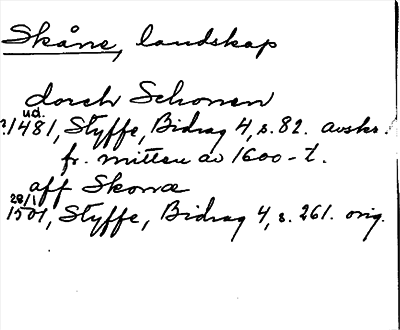 Skåne, landskap
dorch Schonen
u.d.
?1481, Styffe, Bidrag 4, s. 82. avskr.
fr. mitten av 1600-t.
aff Skonæ
28/1
1501, Styffe, Bidrag 4, s. 261. orig.